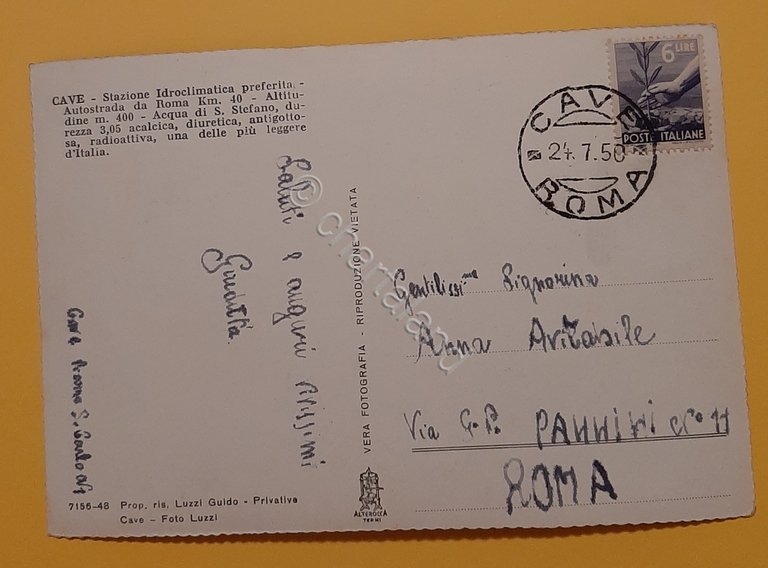 CAVE - Stazione Idroclimatica preferita -
Autostrada da Roma Km. 40 - Altitu-
dine m. 400 - Acqua di S. Stefano, du-
rezza 3,05 acalcica, diuretica, antigotto-
sa, radioattiva, una delle più leggere
d'Italia.
6 LIRE
POSTE ITALIANE
CAVE
24.7.50
ROMA
Saluti e auguri vivissimi
Giuditta
Cave Roma S. Carlo
VERA FOTOGRAFIA - RIPRODUZIONE VIETATA
Gentilissima Signorina
Anna Avitabile
Via G. P. PANNINI n° 11
ROMA
7156-48 Prop. ris. Luzzi Guido - Privative
Cave - Foto Luzzi
ALTEROCCA
TERNI
© chartaland